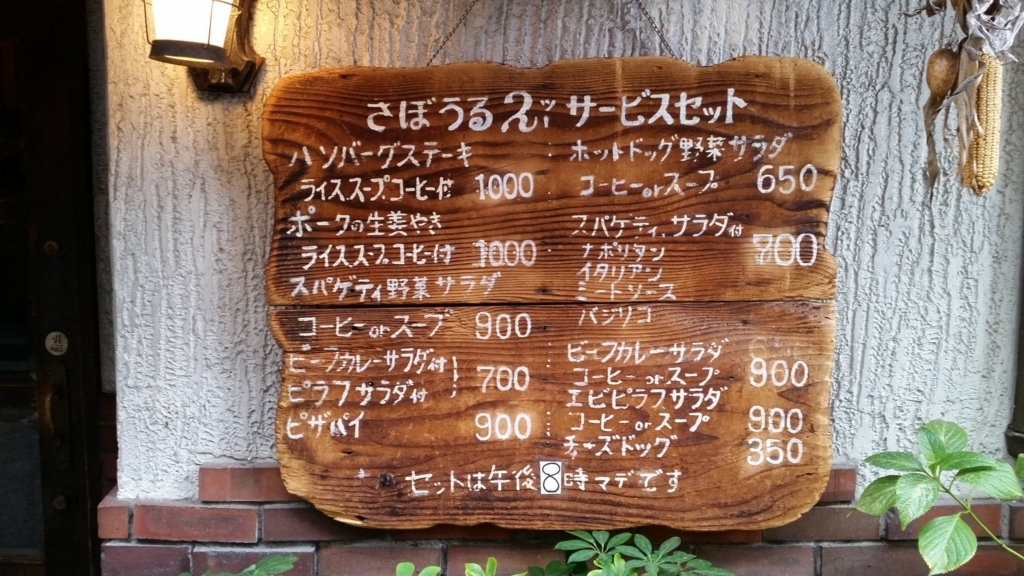 さぼうる2ッ サービスセット
ハンバーグステーキ
ライス,スープ,コーヒー付 1000
ポークの生姜やき
ライス,スープ,コーヒー付 1000
スパゲティ野菜サラダ
コーヒーorスープ 900
ビーフカレーサラダ付
ピラフサラダ付 } 700
ピザパイ 900
ホットドッグ野菜サラダ
コーヒーorスープ 650
スパゲティ,サラダ付 700
ナポリタン
イタリアン
ミートソース
バジリコ
ビーフカレーサラダ
コーヒーorスープ 900
エビピラフサラダ
コーヒーorスープ 900
チーズドッグ 350
セットは午後8時マデです